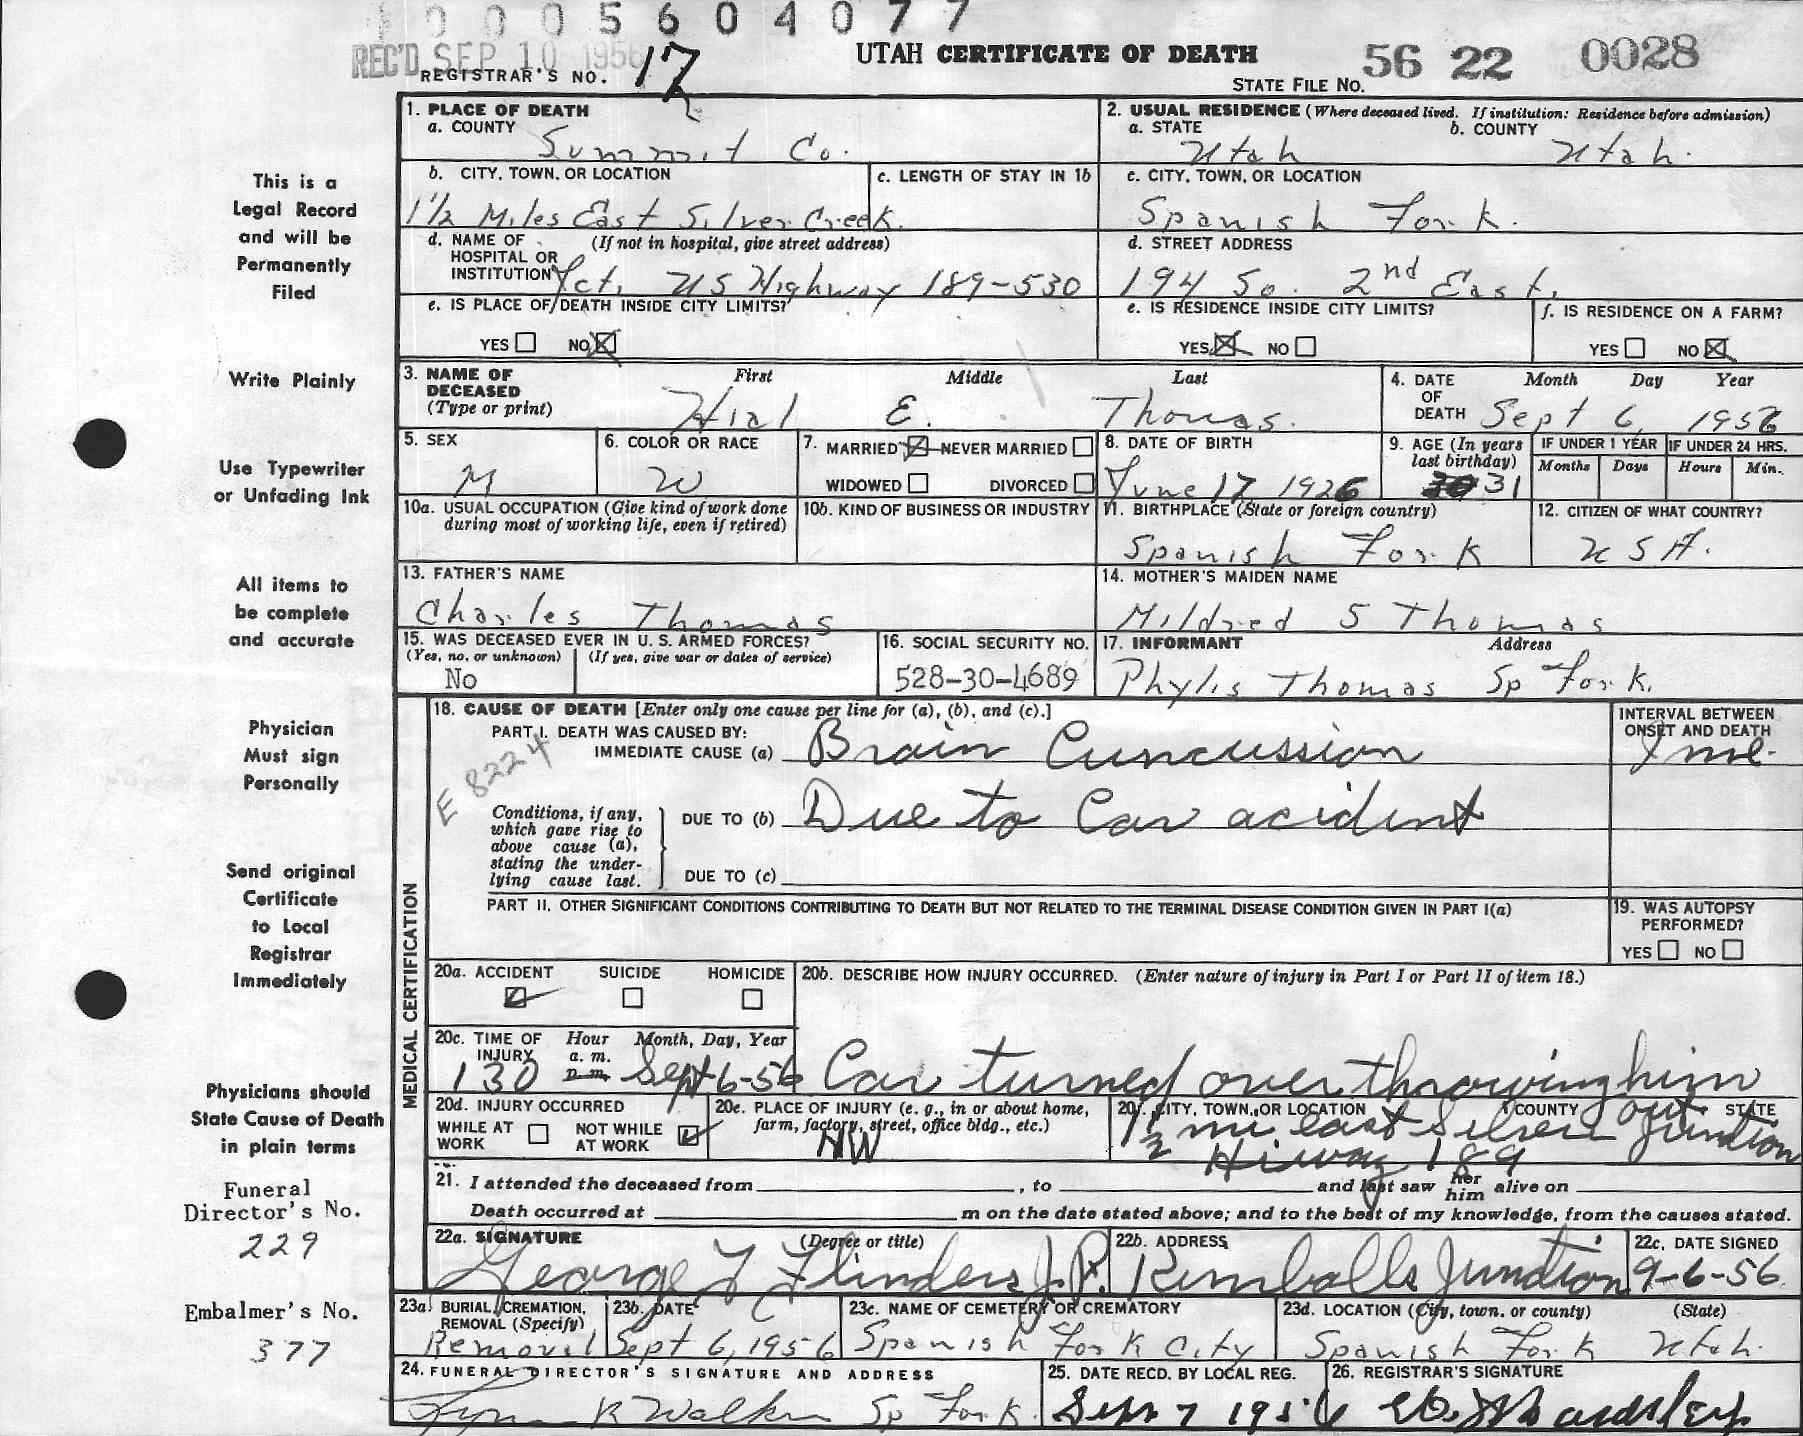 0005604077
REC'D SEP 10 1956
REGISTRAR'S NO. 17
UTAH CERTIFICATE OF DEATH
STATE FILE NO. 56 22 0028
This is a
Legal Record
and will be
Permanently
Filed
Write Plainly
Use Typewriter
or Unfading Ink
All items to
be complete
and accurate
Physician
Must sign
Personally
Send original
Certificate
to Local
Registrar
Immediately
Physicians should
State Cause of Death
in plain terms
Funeral
Director's No.
229
Embalmer's No.
377
1. PLACE OF DEATH
a. COUNTY
Summit Co.
2. USUAL RESIDENCE (Where deceased lived. If institution: Residence before admission)
a. STATE b. COUNTY
Utah Utah.
b. CITY, TOWN, OR LOCATION
c. LENGTH OF STAY IN 1b
1 1/2 Miles East Silver Creek.
c. CITY, TOWN, OR LOCATION
Spanish Fork.
d. NAME OF (If not in hospital, give street address)
HOSPITAL OR
INSTITUTION Jct. US Highway 189-530
d. STREET ADDRESS
194 So. 2nd East.
e. IS PLACE OF DEATH INSIDE CITY LIMITS?
YES NO
e. IS RESIDENCE INSIDE CITY LIMITS?
YES NO
f. IS RESIDENCE ON A FARM?
YES NO
3. NAME OF DECEASED
(Type or print)
First Middle Last
Hial E. Thomas.
4. DATE OF DEATH
Month Day Year
Sept 6, 1956
5. SEX
M
6. COLOR OR RACE
W
7. MARRIED NEVER MARRIED
WIDOWED DIVORCED
8. DATE OF BIRTH
June 17 1926
9. AGE (In years
last birthday)
30 31
IF UNDER 1 YEAR
Months Days
IF UNDER 24 HRS.
Hours Min.
10a. USUAL OCCUPATION (Give kind of work done
during most of working life, even if retired)
10b. KIND OF BUSINESS OR INDUSTRY
11. BIRTHPLACE (State or foreign country)
Spanish Fork
12. CITIZEN OF WHAT COUNTRY?
USA.
13. FATHER'S NAME
Charles Thomas
14. MOTHER'S MAIDEN NAME
Mildred S Thomas
15. WAS DECEASED EVER IN U. S. ARMED FORCES?
(Yes, no, or unknown) (If yes, give war or dates of service)
No
16. SOCIAL SECURITY NO.
528-30-4689
17. INFORMANT Address
Phylis Thomas Sp Fork.
MEDICAL CERTIFICATION
18. CAUSE OF DEATH [Enter only one cause per line for (a), (b), and (c).]
PART I. DEATH WAS CAUSED BY:
IMMEDIATE CAUSE (a) Brain Cuncussion
INTERVAL BETWEEN
ONSET AND DEATH
E 8224
Conditions, if any,
which gave rise to
above cause (a),
stating the under-
lying cause last.
DUE TO (b) Due to Car acident
DUE TO (c)
PART II. OTHER SIGNIFICANT CONDITIONS CONTRIBUTING TO DEATH BUT NOT RELATED TO THE TERMINAL DISEASE CONDITION GIVEN IN PART I(a)
19. WAS AUTOPSY
PERFORMED?
YES NO
20a. ACCIDENT SUICIDE HOMICIDE
20b. DESCRIBE HOW INJURY OCCURRED. (Enter nature of injury in Part I or Part II of item 18.)
Car turned over throwing him
out.
20c. TIME OF INJURY
Hour Month, Day, Year
a. m.
p. m.
130 Sept-6-56
20d. INJURY OCCURRED
WHILE AT WORK
NOT WHILE AT WORK
20e. PLACE OF INJURY (e. g., in or about home,
farm, factory, street, office bldg., etc.)
HW
20f. CITY, TOWN, OR LOCATION COUNTY STATE
1 1/2 mi east Silver Junction
Hiway 189
21. I attended the deceased from , to and last saw her him alive on
Death occurred at m on the date stated above; and to the best of my knowledge, from the causes stated.
22a. SIGNATURE (Degree or title)
George F Flinders J.P.
22b. ADDRESS
Kimballs Junction
22c. DATE SIGNED
9-6-56
23a. BURIAL, CREMATION,
REMOVAL (Specify)
Removal
23b. DATE
Sept 6, 1956
23c. NAME OF CEMETERY OR CREMATORY
Spanish Fork City
23d. LOCATION (City, town, or county) (State)
Spanish Fork Utah.
24. FUNERAL DIRECTOR'S SIGNATURE AND ADDRESS
R Walker Sp Fork
25. DATE RECD. BY LOCAL REG.
Sept 7 1956
26. REGISTRAR'S SIGNATURE